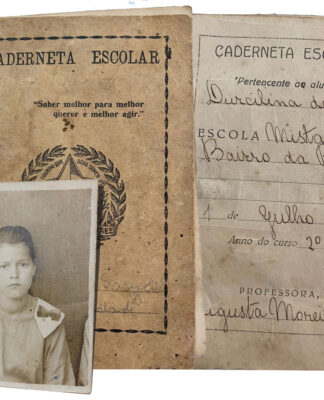 CADERNETA ESCOLAR
"Saber melhor para melhor
querer e melhor agir."
CADERNETA ESC
Pertencente ao alu
Durcilina de
ESCOLA Mista
Bairro da
1 de Julho
Anno do curso 2º
PROFESSORA,
gusta Morei